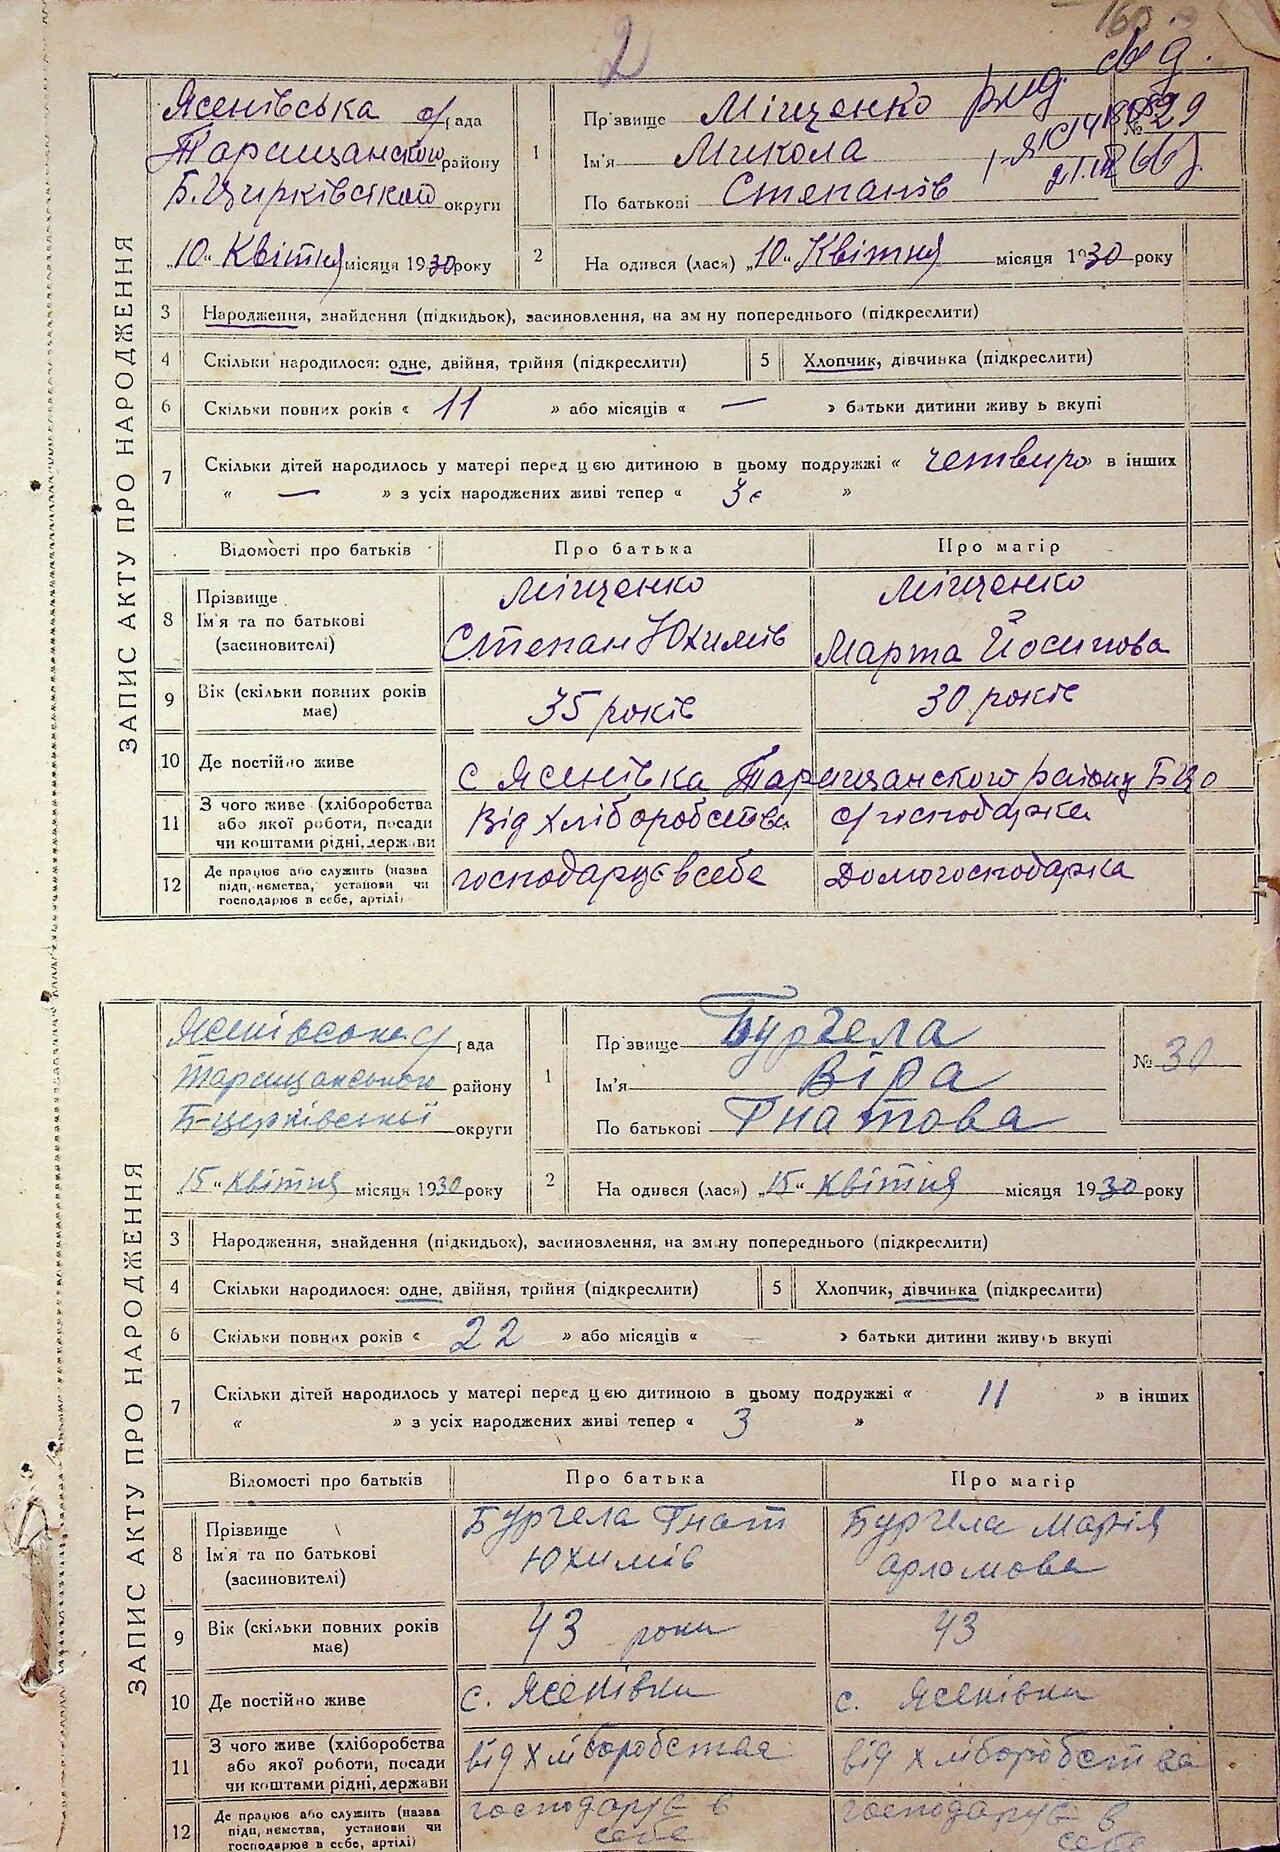 2
160
ЗАПИС АКТУ ПРО НАРОДЖЕННЯ
Ясенівська с/рада
Таращанского району
Б. Цирківсткой округи
„10“ Квітня місяця 1930 року
1
Прізвище Міщенко
Ім'я Микола
По батькові Степанів
№ 29
2
На одився (лася) „10“ Квітня місяця 1930 року
3 Народження, знайдення (підкидьок), засиновлення, на зм ну попереднього (підкреслити)
4 Скільки народилося: одне, двійня, трійня (підкреслити) 5 Хлопчик, дівчинка (підкреслити)
6 Скільки повних років « 11 » або місяців « — » батьки дитини живу ь вкупі
7 Скільки дітей народилось у матері перед цею дитиною в цьому подружжі « четвиро » в інших
« — » з усіх народжених живі тепер « 3є »
Відомості про батьків Про батька Про матір
8 Прізвище Ім'я та по батькові (засиновителі)
Міщенко Степан Юхимів
Міщенко Марта Йосипова
9 Вік (скільки повних років має) 35 років 30 років
10 Де постійно живе с Ясенівка Таращанского району БЦо
11 З чого живе (хліборобства або якої роботи, посади чи коштами рідні, держави
Від хліборобства с/господарка
12 Де працює або служить (назва підп,немства, установи чи господарює в себе, артілі)
господарує в себе Домогосподарка
ЗАПИС АКТУ ПРО НАРОДЖЕННЯ
Ясенівська с/рада
Таращанського району
Б-церківської округи
„15“ квітня місяця 1930 року
1
Прізвище Бургела
Ім'я Віра
По батькові Гнатова
№ 30
2
На одився (лася) „15“ квітня місяця 1930 року
3 Народження, знайдення (підкидьок), засиновлення, на зм ну попереднього (підкреслити)
4 Скільки народилося: одне, двійня, трійня (підкреслити) 5 Хлопчик, дівчинка (підкреслити)
6 Скільки повних років « 22 » або місяців « » батьки дитини живуь вкупі
7 Скільки дітей народилось у матері перед цею дитиною в цьому подружжі « 11 » в інших
« » з усіх народжених живі тепер « 3 »
Відомості про батьків Про батька Про матір
8 Прізвище Ім'я та по батькові (засиновителі)
Бургела Гнат Юхимів
Бургела Марія
9 Вік (скільки повних років має) 43 роки 43
10 Де постійно живе с. Ясенівки с. Ясенівки
11 З чого живе (хліборобства або якої роботи, посади чи коштами рідні, держави
від хліборобства від хліборобства
12 Де працює або служить (назва підп,немства, установи чи господарює в себе, артілі)
господарує в себе господарує в себе